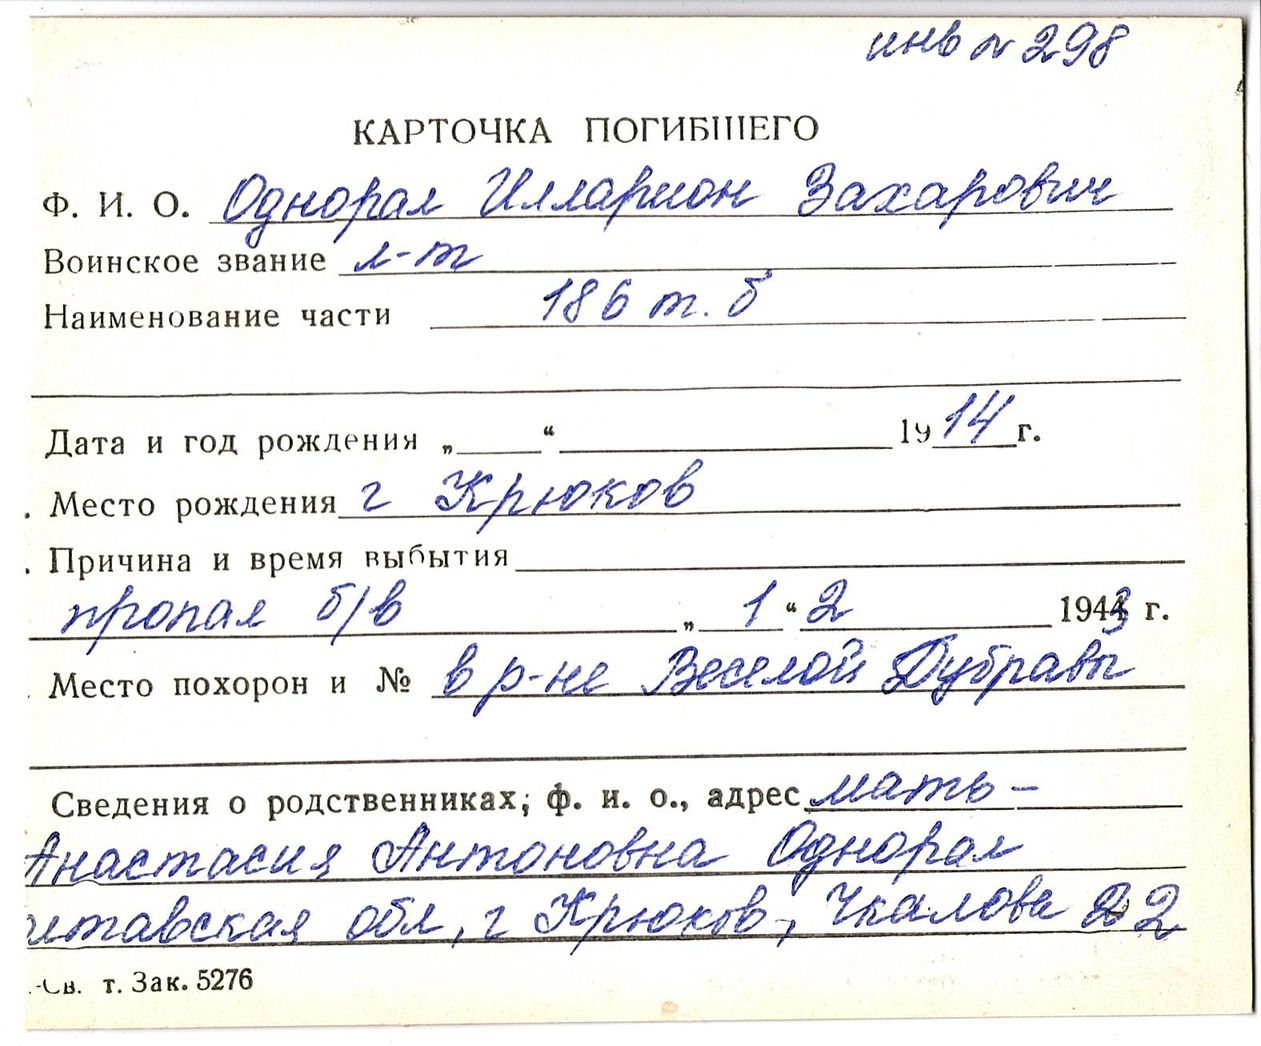 инв № 298
КАРТОЧКА ПОГИБШЕГО
Ф. И. О. Однорал Илларион Захарович
Воинское звание л-т
Наименование части 186 т. б
Дата и год рождения „ “ 1914 г.
Место рождения г Крюков
Причина и время выбытия
пропал б/в „ 1 “ 2 1943 г.
Место похорон и № в р-не Веселой Дубравы
Сведения о родственниках, ф. и. о., адрес мать –
Анастасия Антоновна Однорал
лтавская обл, г Крюков, Чкалова 22
-Св. т. Зак. 5276